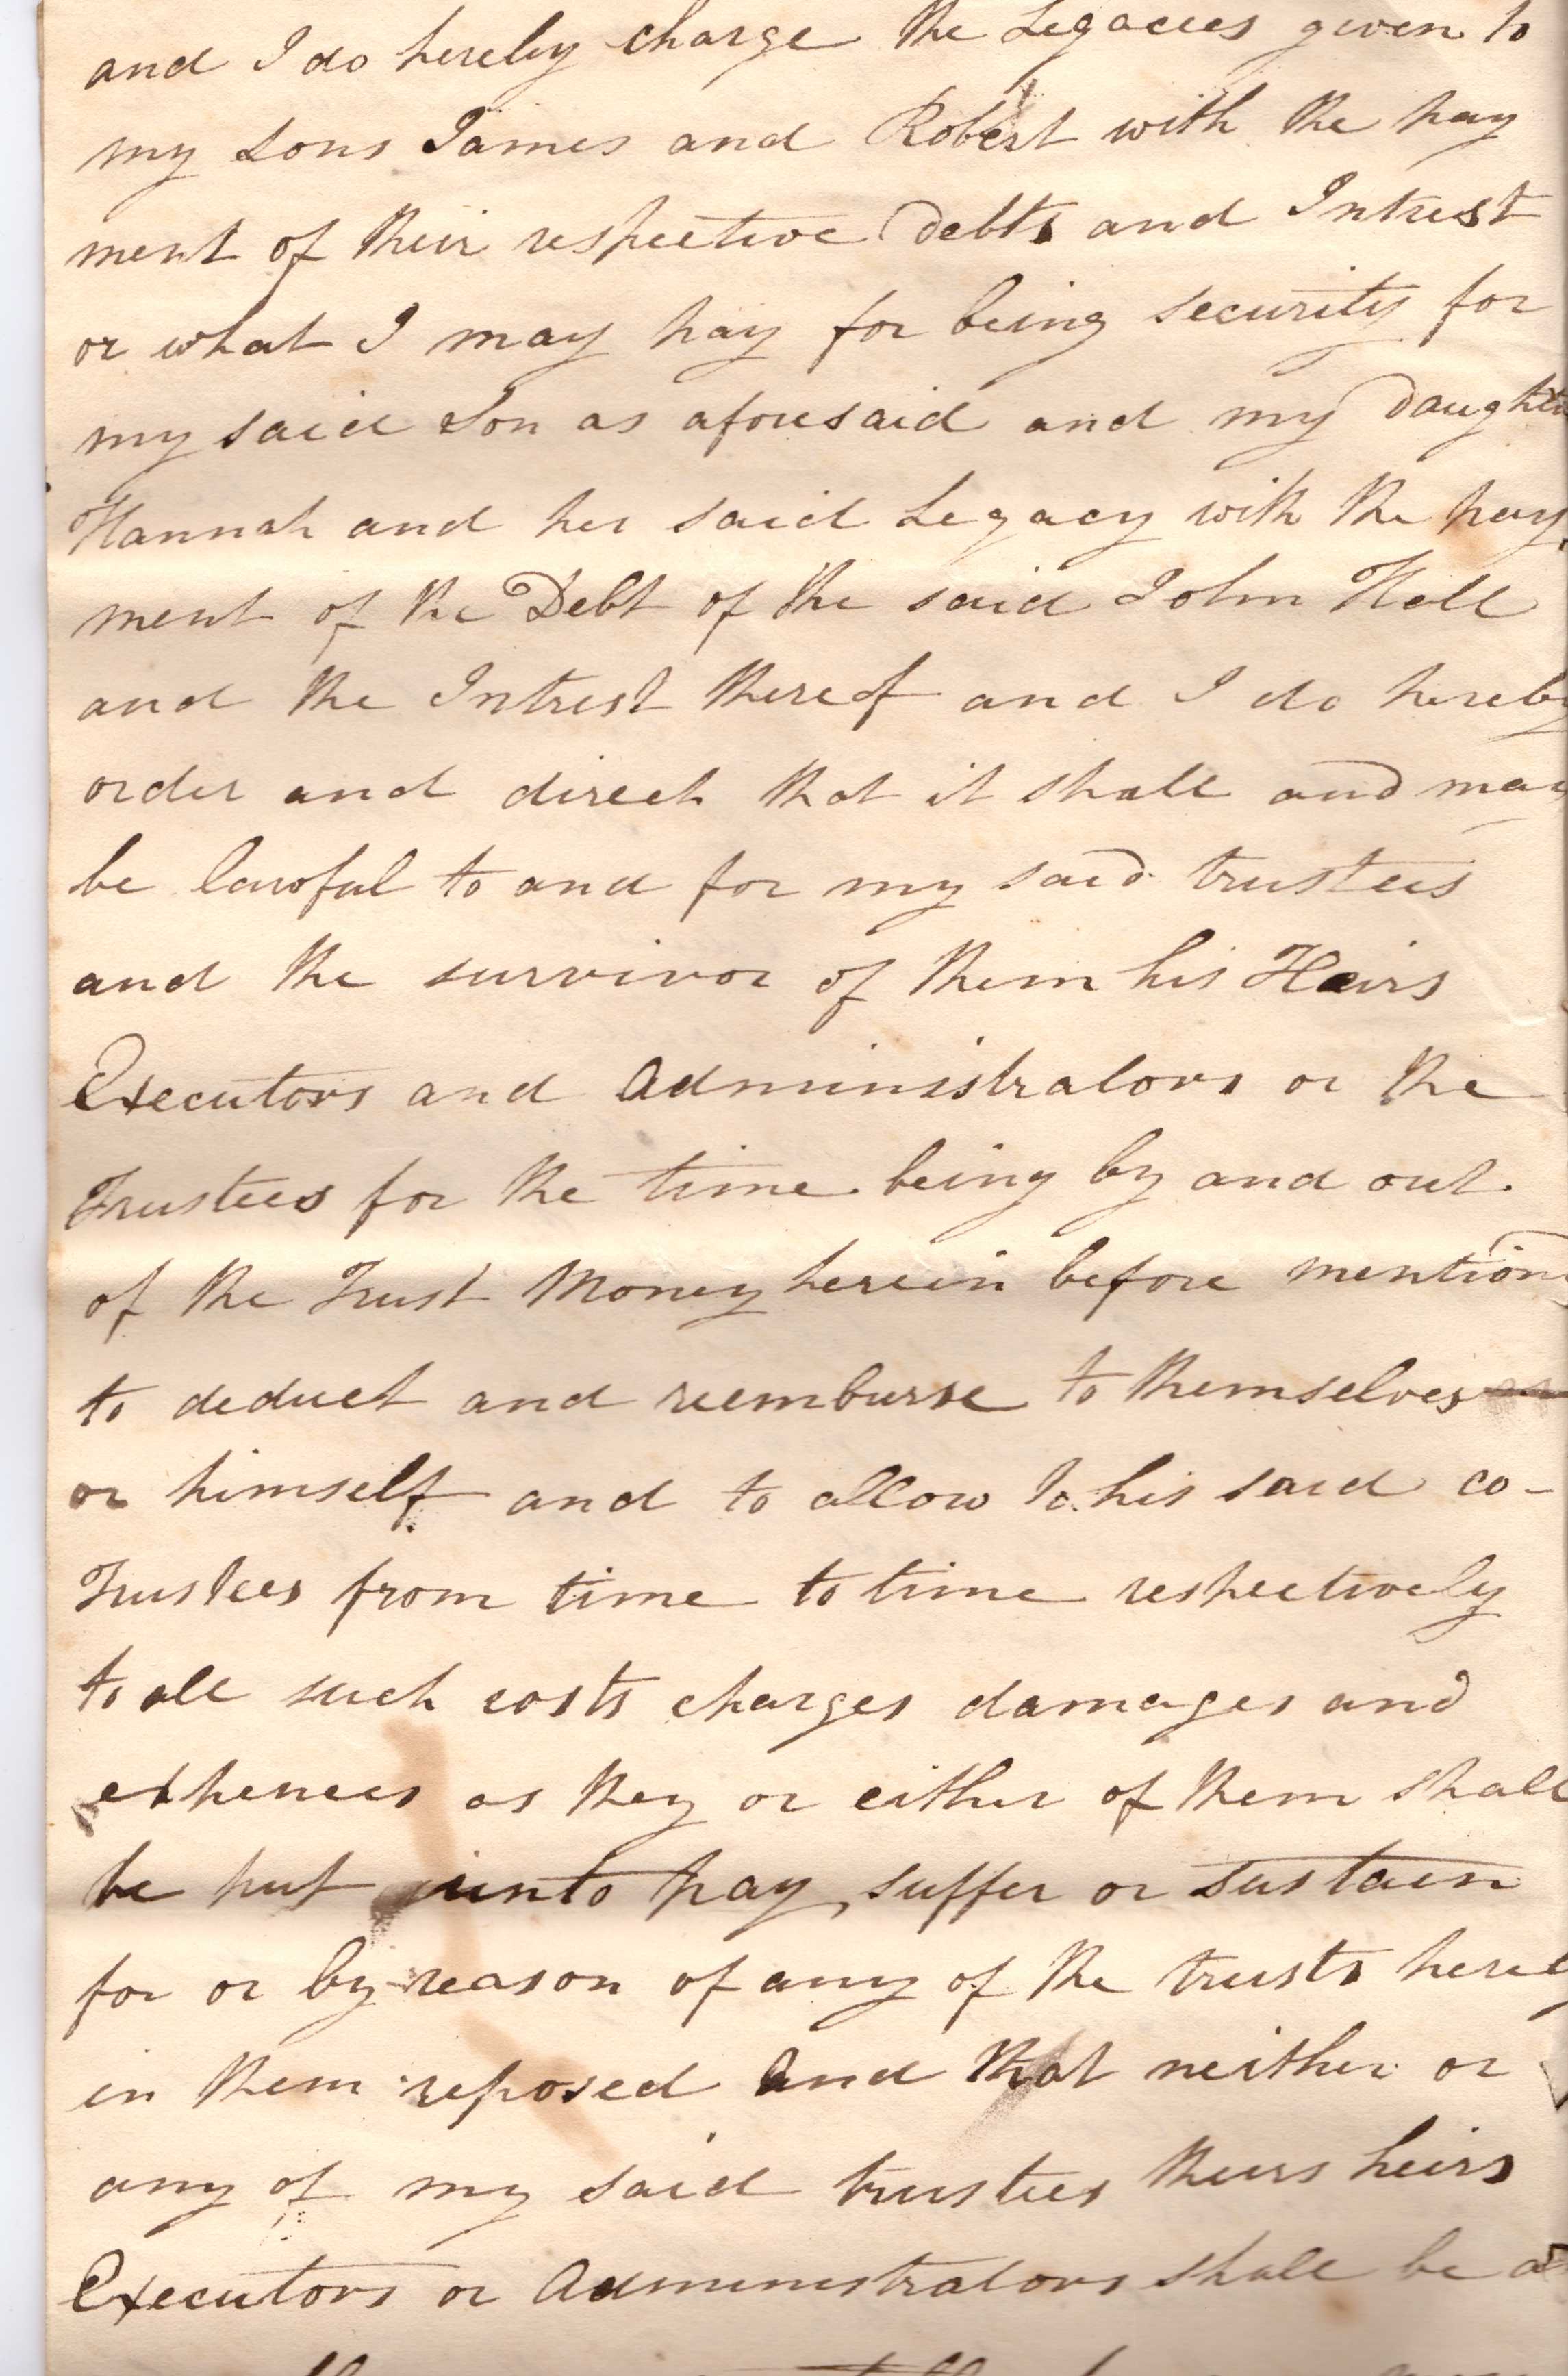 and I do hereby charge the Legacies given to
my sons James and Robert with the pay
ment of their respective Debts and Intrest
or what I may pay for being security for
my said Son as aforesaid and my Daughte
Hannah and her said Legacy with the pay
ment of the Debt of the said John Hall
and the Intrest thereof and I do hereby
order and direct that it shall and may
be lawful to and for my said trustees
and the survivor of them his Heirs
Executors and Administrators or the
Trustees for the time being by and out
of the Trust Money herein before mention
to deduct and reemburse to themselves
or himself and to allow to his said co-
Trustees from time to time respectively
to all such costs charges damages and
expences as they or either of them shall
be put unto pay, suffer or sustain
for or by reason of any of the trusts hereby
in them reposed And that neither or
any of my said trustees theirs heirs
Executors or Administrators shall be